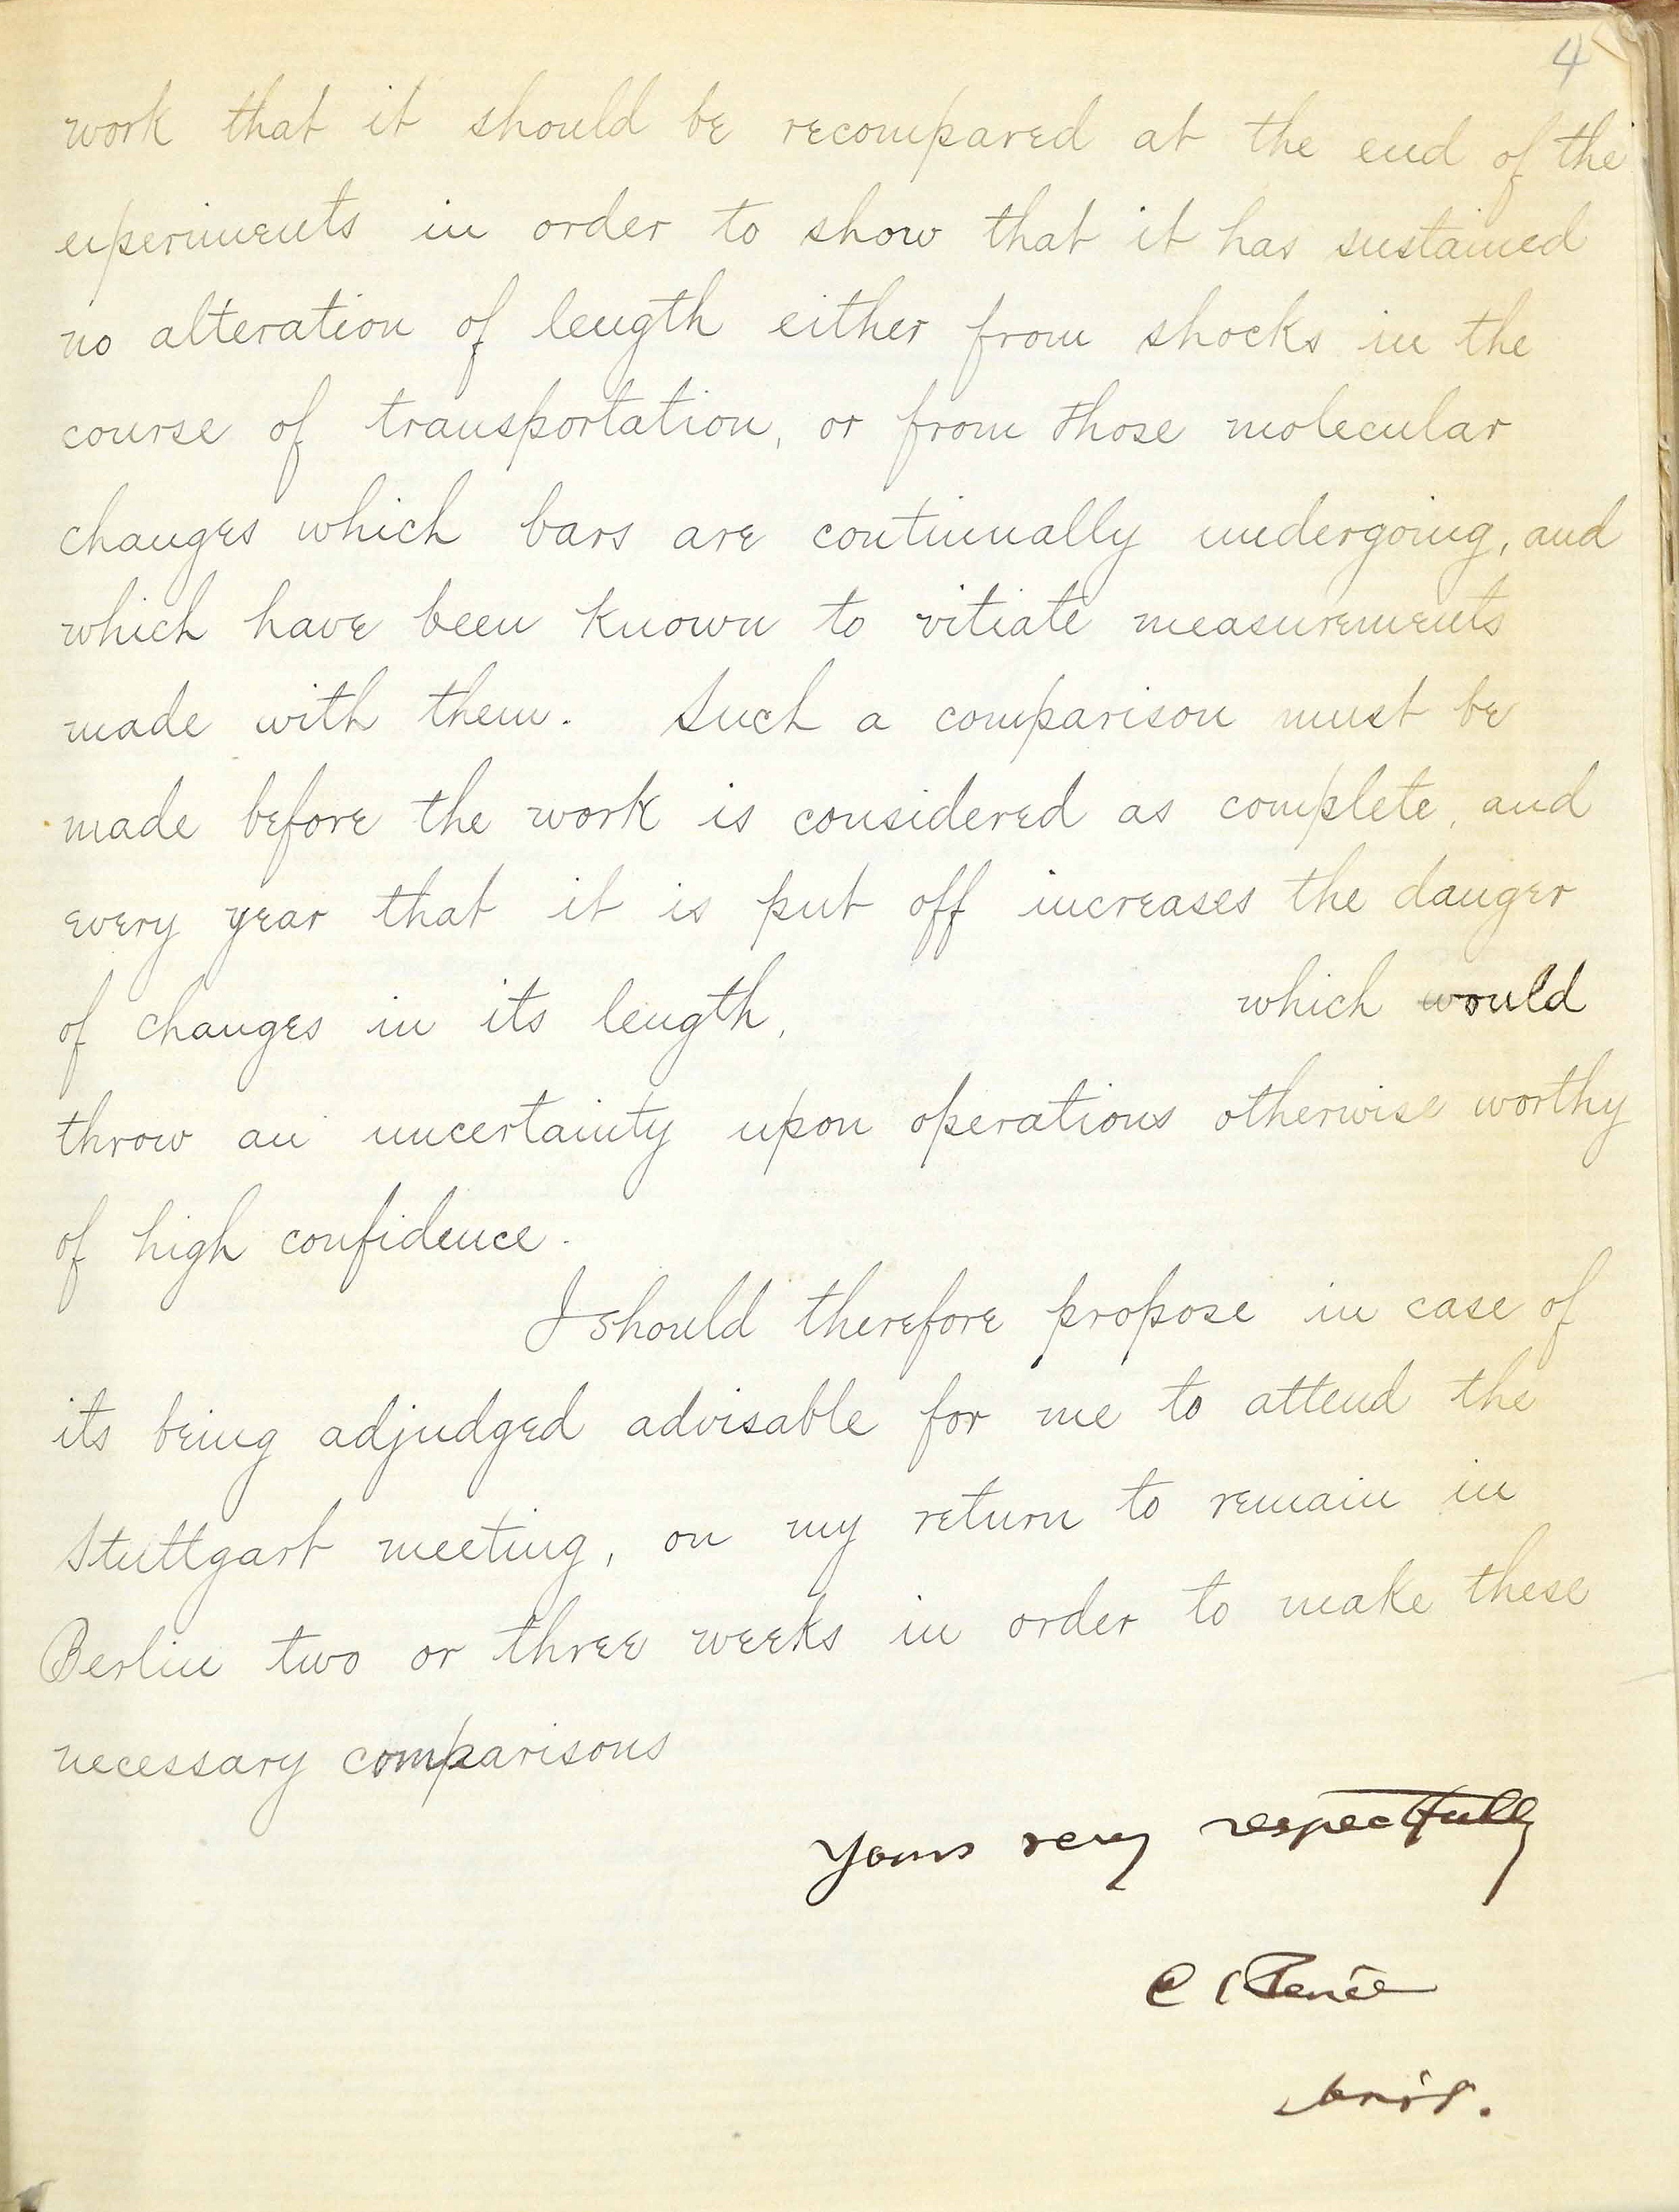 4
work that it should be recompared at the end of the
experiments in order to show that it has sustained
no alteration of length either from shocks in the
course of transportation, or from those molecular
changes which bars are continually undergoing, and
which have been known to vitiate measurements
made with them. Such a comparison must be
made before the work is considered as complete, and
every year that it is put off increases the danger
of changes in its length, which would
throw an uncertainty upon operations otherwise worthy
of high confidence.
I should therefore propose in case of
its being adjudged advisable for me to attend the
Stuttgart meeting, on my return to remain in
Berlin two or three weeks in order to make these
necessary comparisons
Yours very respectfully
C S Peirce
Assist.